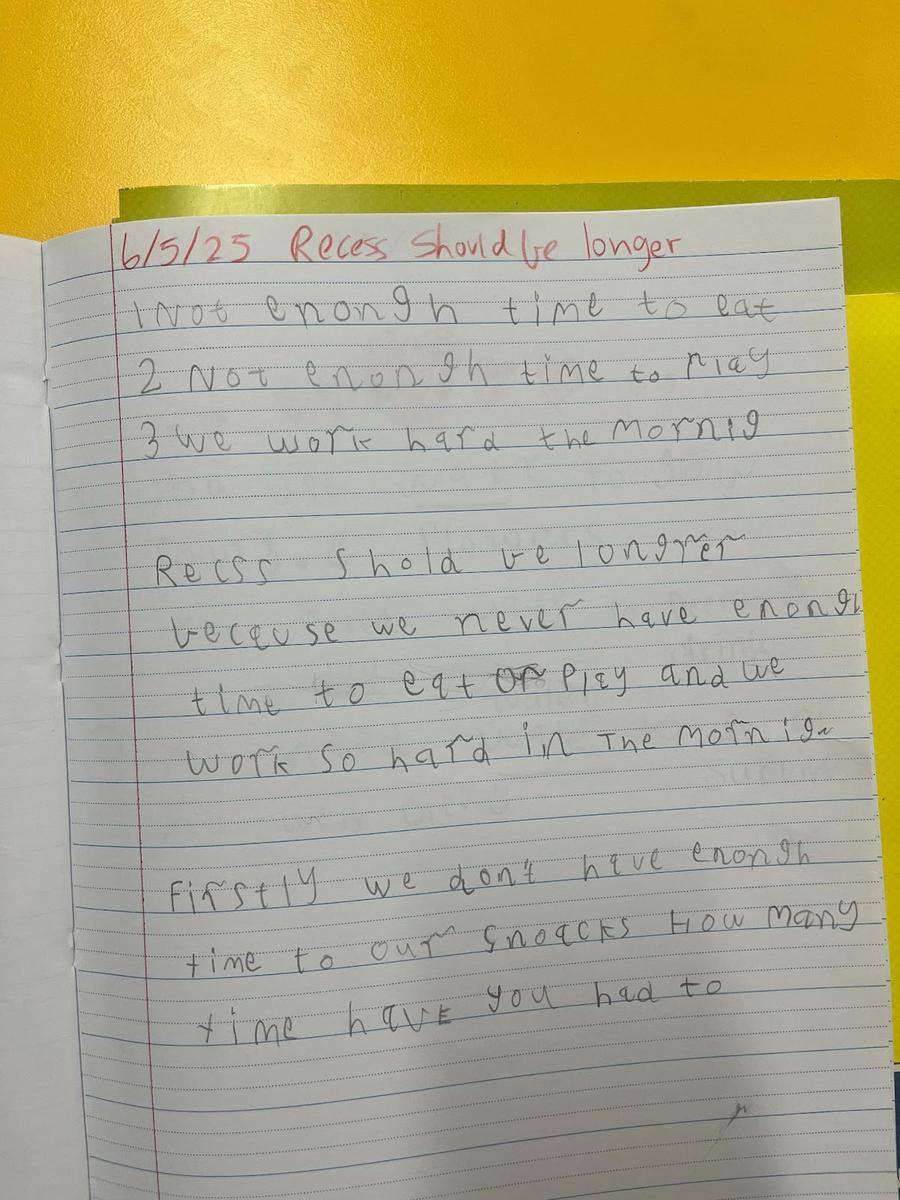 6/5/25 Recess should be longer
1 Not enongh time to eat
2 Not enongh time to Play
3 we work hard the mornig
Recss shold be longrer
because we never have enongh
time to eat or Play and we
work so hard in The mornign
Firstly we don't have enongh
time to our snoacks How many
time have you had to